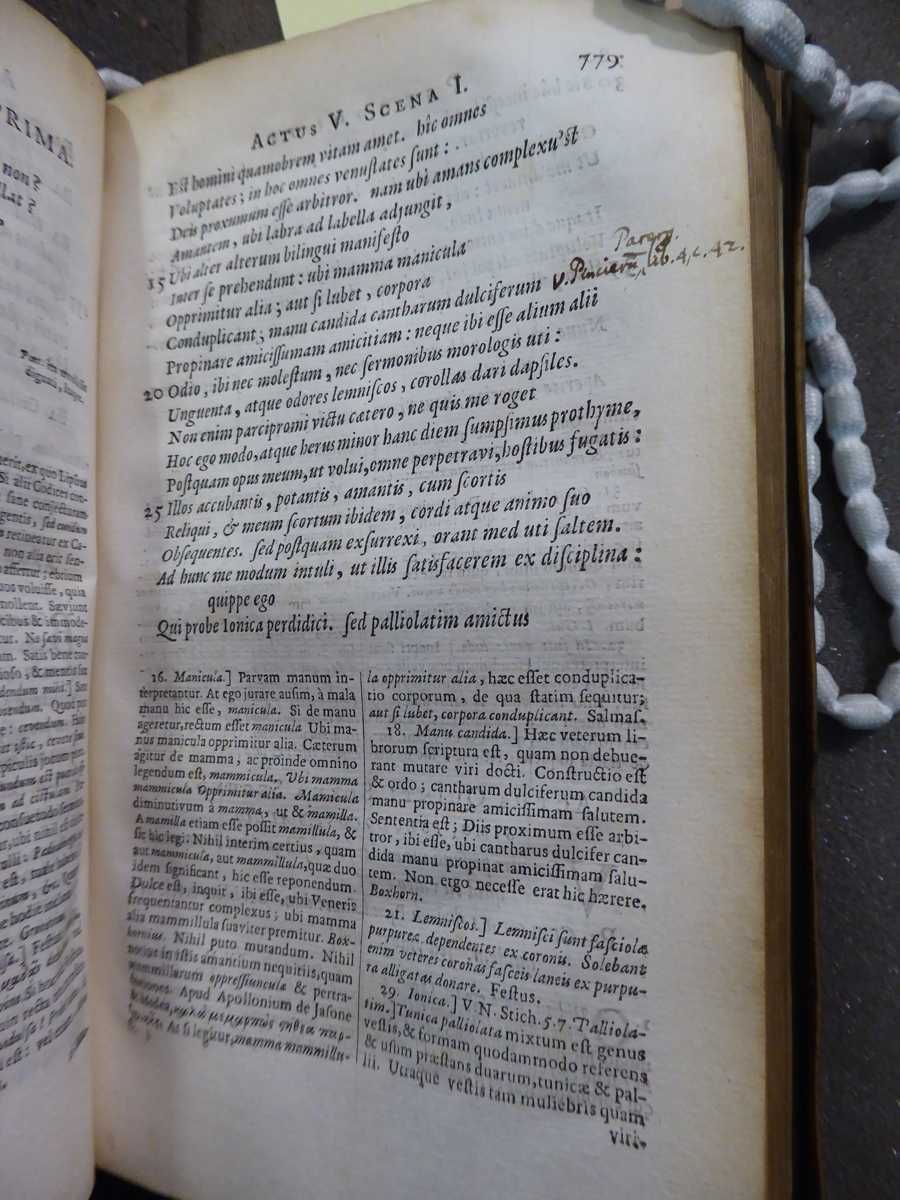 PRIMA.
non?
lat?
779
ACTUS V. SCENA I.
Est homini quamobrem vitam amet. hîc omnes
Voluptates; in hoc omnes venustates sunt:
Deis proxumum esse arbitror. nam ubi amans complexu'st
Amantem, ubi labra ad labella adjungit,
15 Ubi alter alterum bilingui manifesto
Inter se prehendunt: ubi mamma manicula
Opprimitur alia; aut si lubet, corpora
Conduplicant; manu candida cantharum dulciferum v. Pincierū lib. 4, c. 42.
Propinare amicissumam amicitiam: neque ibi esse alium alii
20 Odio, ibi nec molestum, nec sermonibus morologis uti:
Unguenta, atque odores lemniscos, corollas dari dapsiles.
Non enim parcipromi victu cætero, ne quis me roget
Hoc ego modo, atque herus minor hanc diem sumpsimus prothyme,
Postquam opus meum, ut volui, omne perpetravi, hostibus fugatis:
25 Illos accubantis, potantis, amantis, cum scortis
Reliqui, & meum scortum ibidem, cordi atque animo suo
Obsequentes. sed postquam exsurrexi, orant med uti saltem.
Ad hunc me modum intuli, ut illis satisfacerem ex disciplina:
quippe ego
Qui probe Ionica perdidici. sed palliolatim amictus
16. Manicula.] Parvam manum in-
terpretantur. At ego jurare ausim, à mala
manu hic esse, manicula. Si de manu
ageretur, rectum esset manicula Ubi ma-
nus manicula opprimitur alia. Cæterum
agitur de mamma, ac proinde omnino
legendum est, mammicula. Ubi mamma
mammicula Opprimitur alia. Mamicula
diminutivum à mamma, ut & mamilla.
A mamilla etiam esse possit mamillula, &
sic hic legi: Nihil interim certius, quam
aut mammicula, aut mammillula, quæ duo
idem significant, hic esse reponendum.
Dulce est, inquit, ibi esse, ubi Veneris
frequentantur complexus; ubi mamma
alia mammillula suaviter premitur. Box-
hornius. Nihil puto mutandum. Nihil
notius in istis amantium nequitiis, quam
mammillarum oppressiuncula & pertra-
Apud Apollonium de Jasone
As si legitur, mamma mommillu-
la opprimitur alia, hæc esset conduplica-
tio corporum, de qua statim sequitur;
aut si lubet, corpora conduplicant. Salmas.
18. Manu candida.] Hæc veterum li-
brorum scriptura est, quam non debue-
rant mutare viri docti. Constructio est
& ordo; cantharum dulciferum candida
manu propinare amicissimam salutem.
Sententia est; Diis proximum esse arbi-
tror, ibi esse, ubi cantharus dulcifer can-
dida manu propinat amicissimam salu-
tem. Non ergo necesse erat hic hærere.
Boxhorn.
21. Lemniscos.] Lemnisci sunt fasciolæ
purpureæ dependentes ex coronis. Solebant
enim veteres coronas fasceis laneis ex purpu-
ra alligatas donare. Festus.
29. Ionica.] V. N. Stich. 5. 7. Palliola-
tim.] Tunica palliolata mixtum est genus
vestis, & formam quodammodo referens
& usum præstans duarum, tunicæ & pal-
lii. Utraque vestis tam muliebris quam
viri-